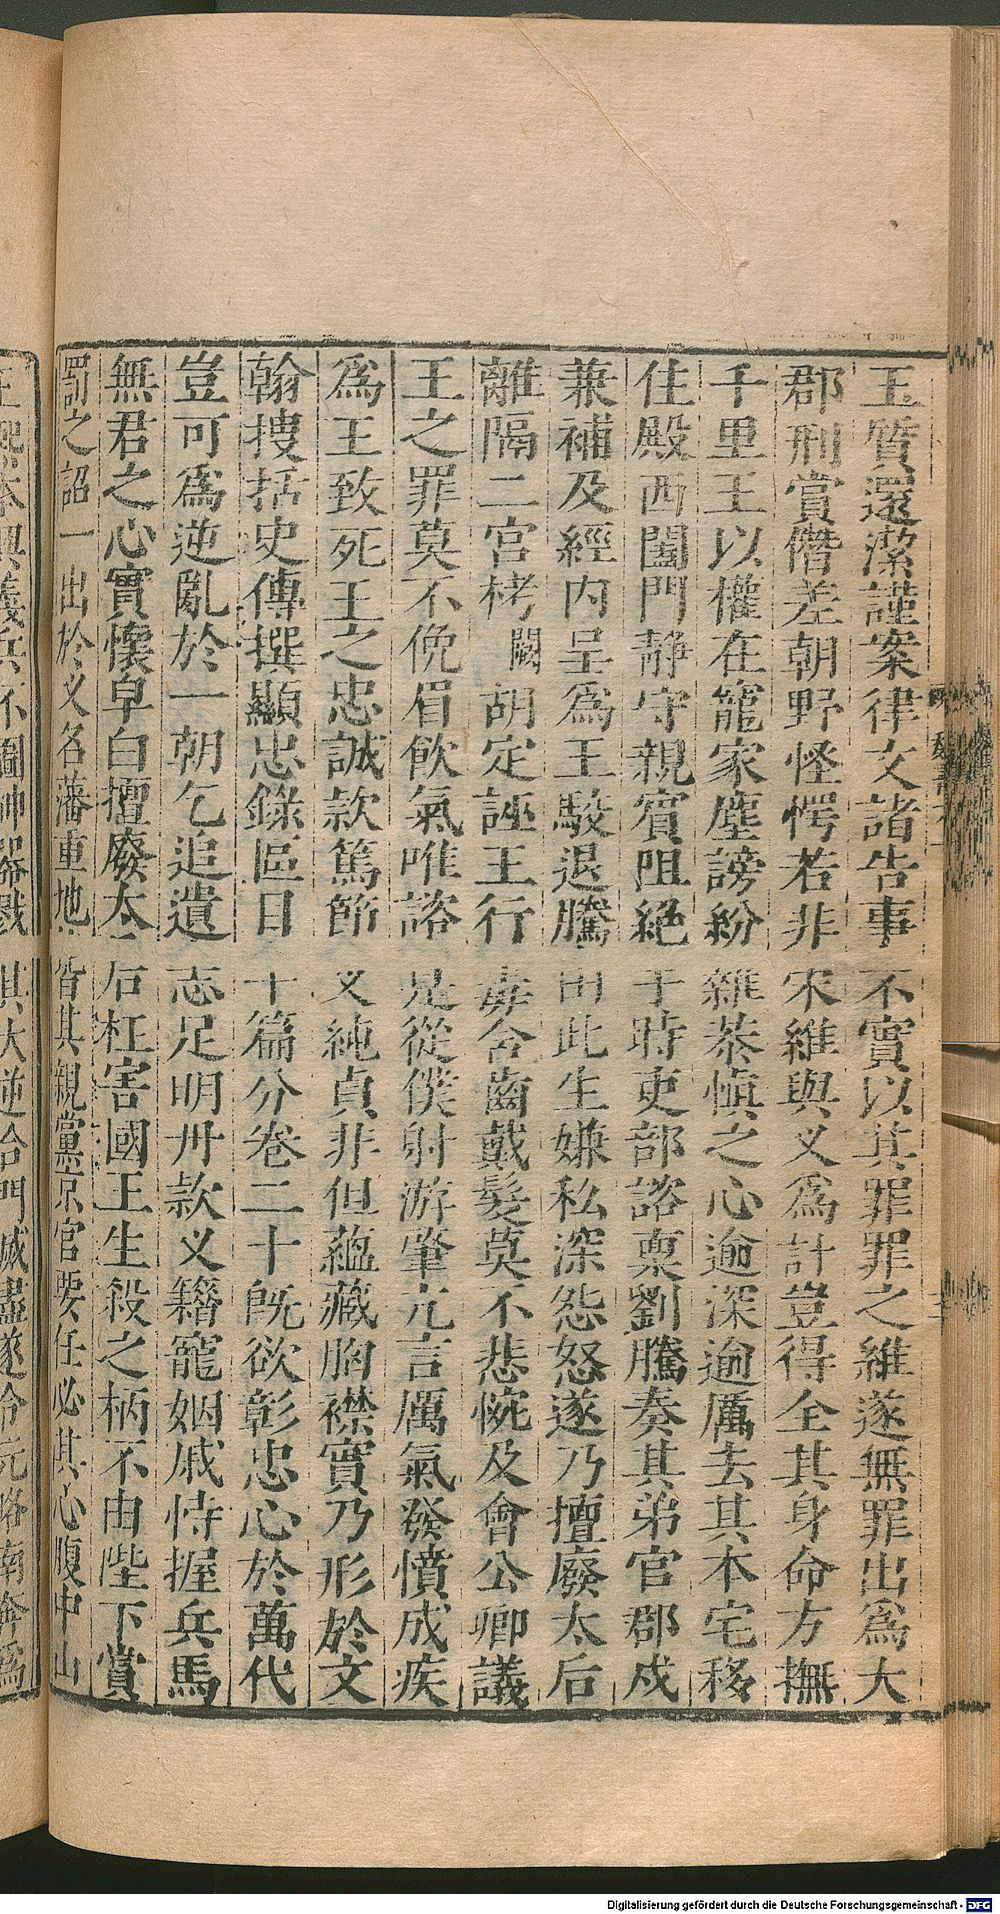 玉質還潔謹案律文諸告事不實以其罪罪之維遂無罪出爲大
郡刑賞僭差朝野怪愕若非宋維與义爲計豈得全其身命方撫
千里王以權在寵家塵謗紛雜恭愼之心逾深逾厲去其本宅移
住殿西闔門靜守親賓阻絕于時吏部諮稟劉騰奏其弟官郡戍
兼補及經內呈爲王駮退騰由此生嫌私深怨怒遂乃擅廢太后
離隔二宮栲闕胡定誣王行毒含齒戴髮莫不悲惋及會公卿議
王之罪莫不俛眉飮氣唯諮是從僕射游肇亢言厲氣發憤成疾
爲王致死王之忠誠款篤節义純貞非但蘊藏胸襟實乃形於文
翰搜括史傳撰顯忠錄區目十篇分卷二十旣欲彰忠心於萬代
豈可爲逆亂於一朝乞追遺志足明丹款义籍寵姻戚恃握兵馬
無君之心實懷皁白擅廢太后枉害國王生殺之柄不由陛下賞
罰之詔一出於义名藩重地皆其親黨京官要任必其心腹中山
本興義兵不圖神器戮其大逆合門滅盡遂令元略南奔爲
Digitalisierung gefördert durch die Deutsche Forschungsgemeinschaft - DFG